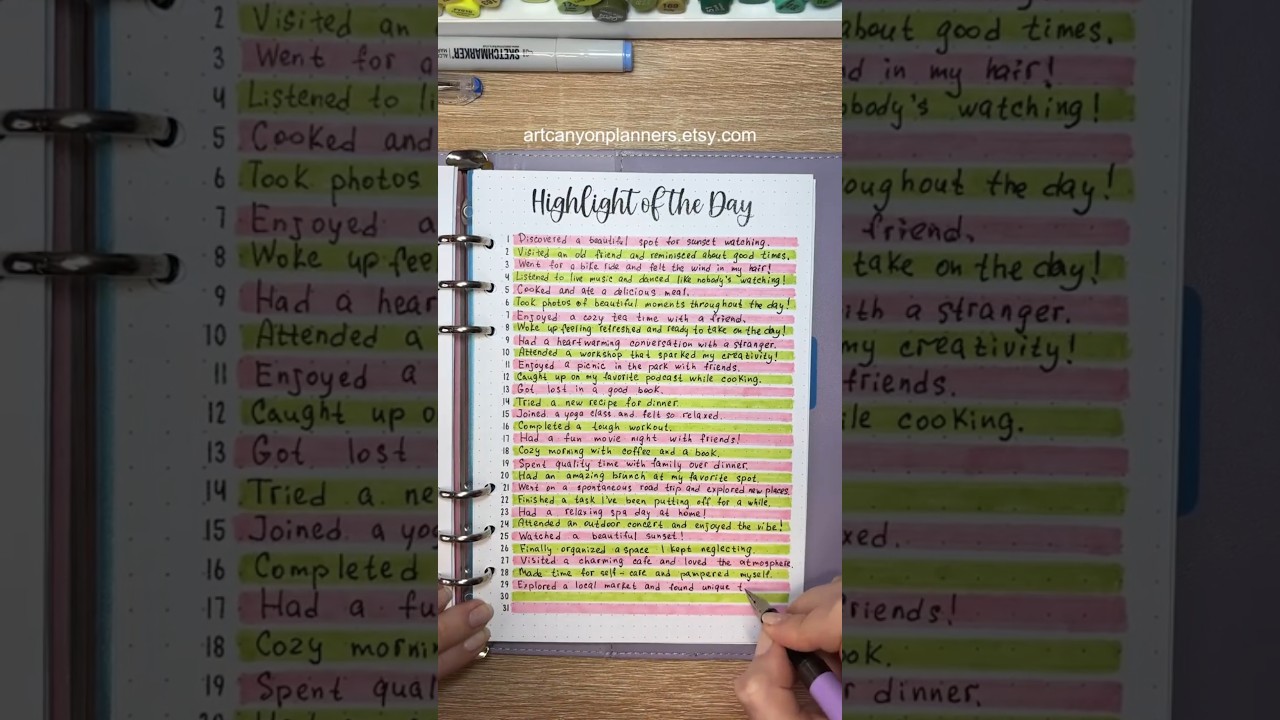 SKETCHMARKER
artcanyonplanners.etsy.com
Highlight of the Day
1 Discovered a beautiful spot for sunset watching.
2 Visited an old friend and reminisced about good times.
3 Went for a bike ride and felt the wind in my hair!
4 Listened to live music and danced like nobody's watching!
5 Cooked and ate a delicious meal.
6 Took photos of beautiful moments throughout the day!
7 Enjoyed a cozy tea time with a friend.
8 Woke up feeling refreshed and ready to take on the day!
9 Had a heartwarming conversation with a stranger.
10 Attended a workshop that sparked my creativity!
11 Enjoyed a picnic in the park with friends.
12 Caught up on my favorite podcast while cooking.
13 Got lost in a good book.
14 Tried a new recipe for dinner.
15 Joined a yoga class and felt so relaxed.
16 Completed a tough workout.
17 Had a fun movie night with friends!
18 Cozy morning with coffee and a book.
19 Spent quality time with family over dinner.
20 Had an amazing brunch at my favorite spot.
21 Went on a spontaneous road trip and explored new places.
22 Finished a task I've been putting off for a while.
23 Had a relaxing spa day at home!
24 Attended an outdoor concert and enjoyed the vibe!
25 Watched a beautiful sunset!
26 Finally organized a space I kept neglecting.
27 Visited a charming cafe and loved the atmosphere.
28 Made time for self-care and pampered myself.
29 Explored a local market and found unique t
30
31